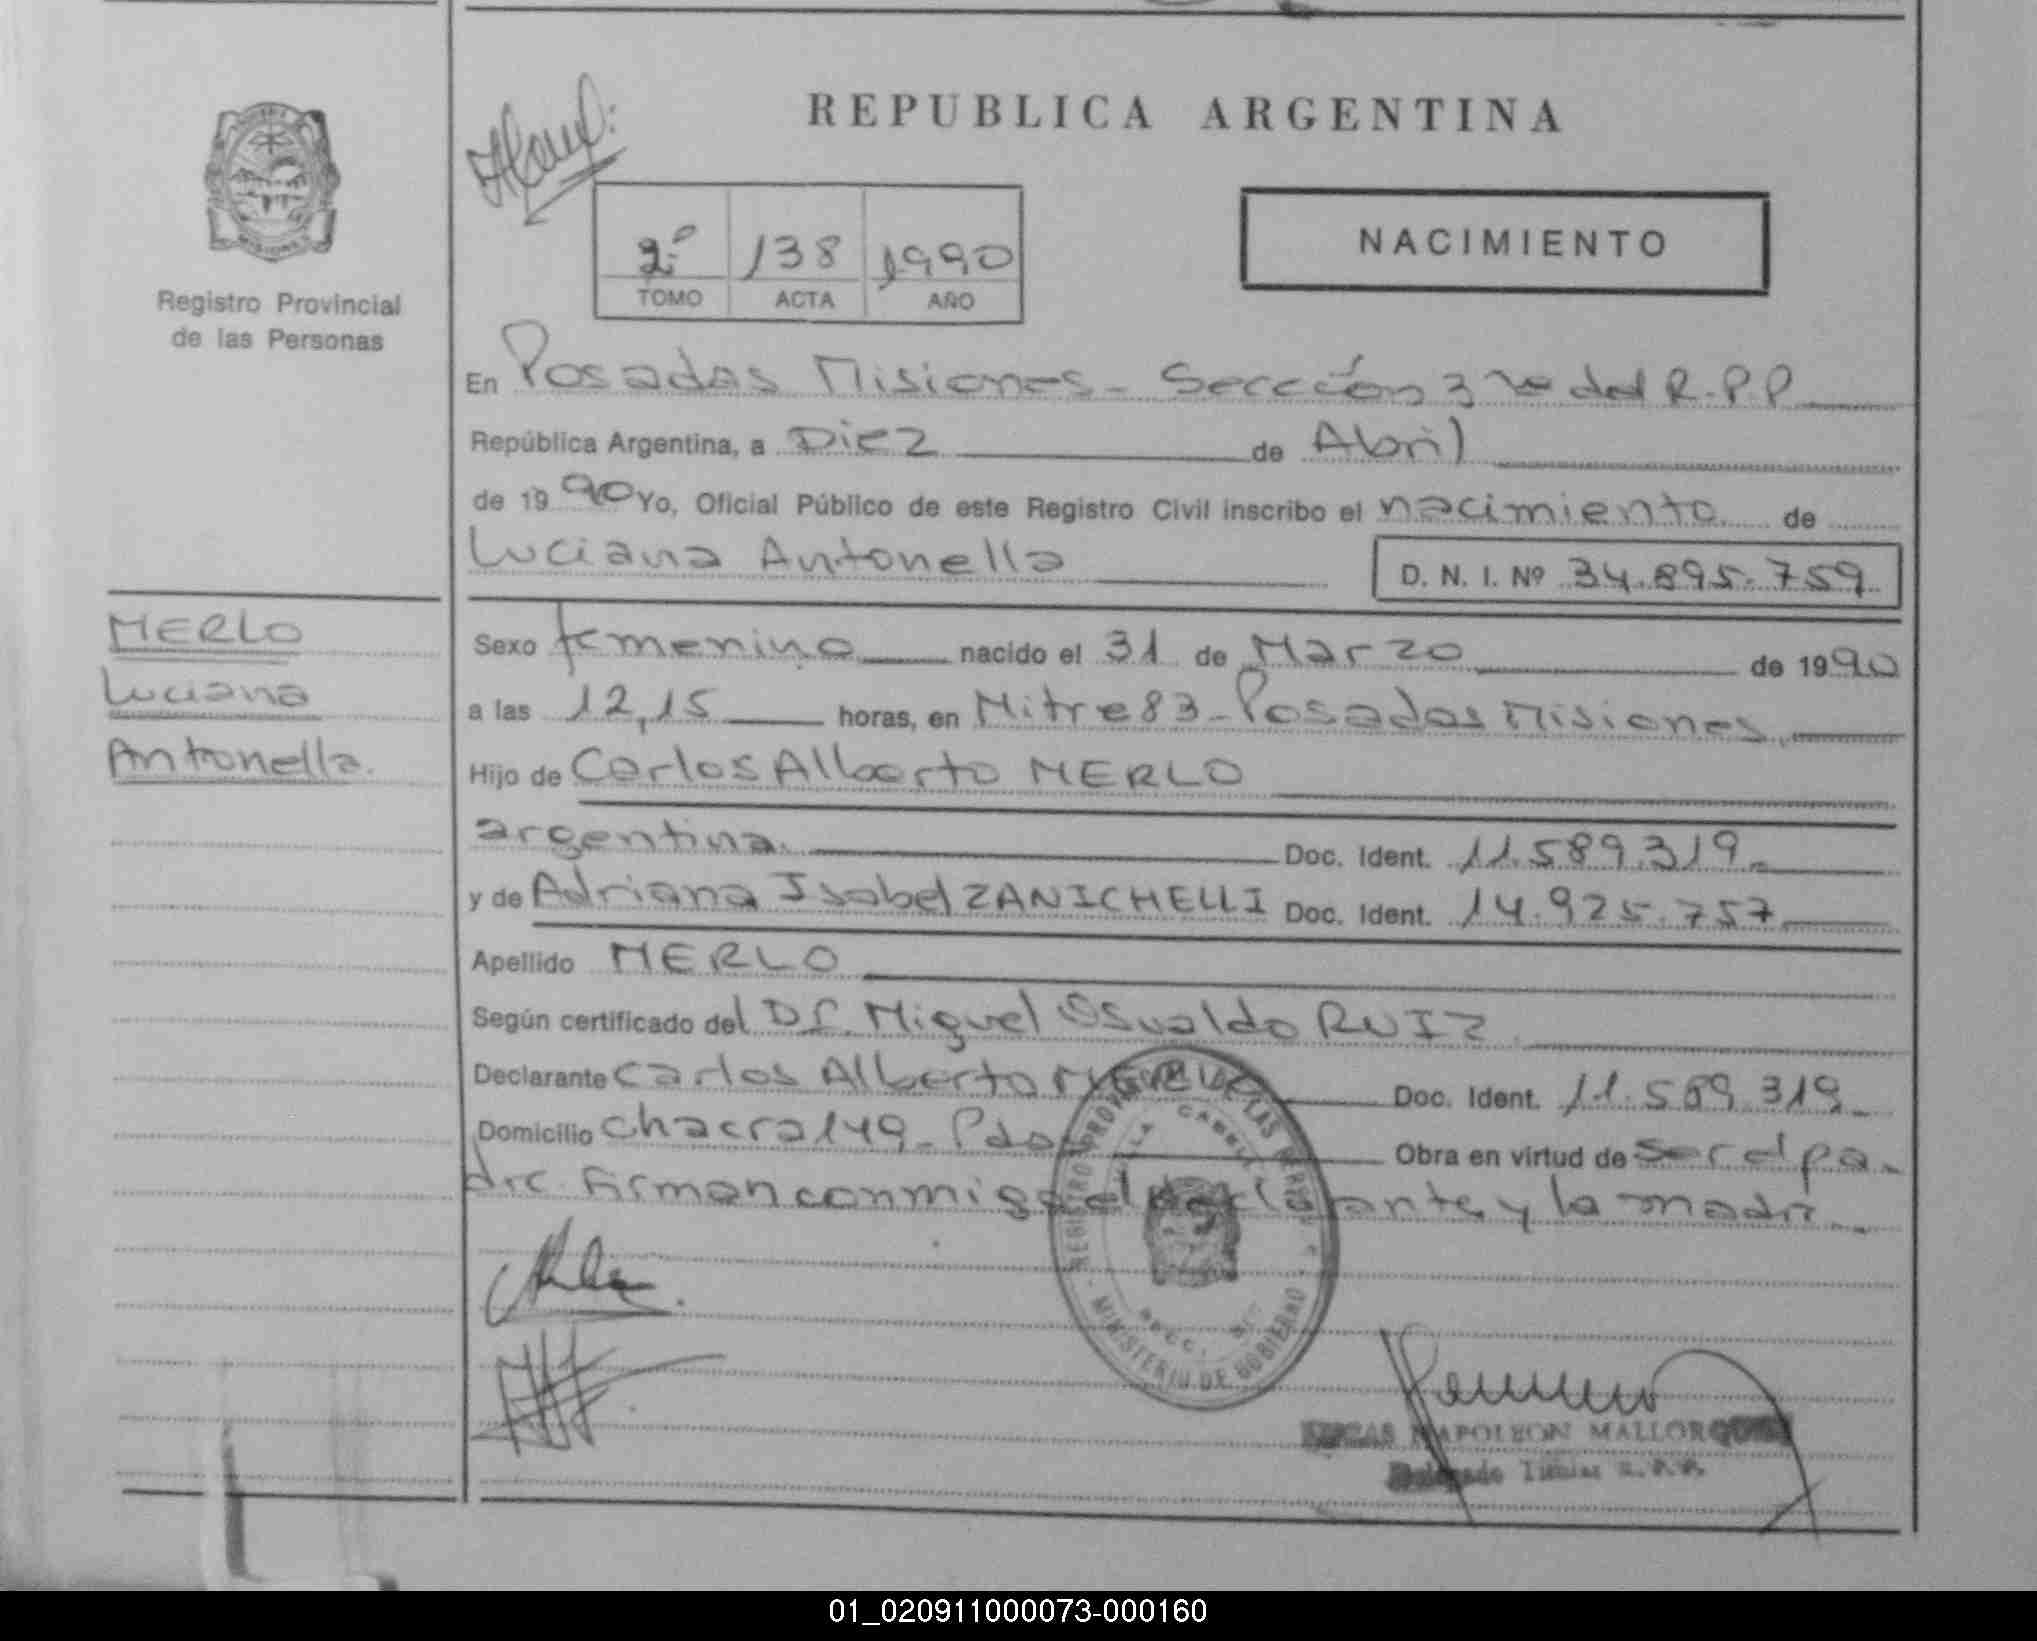 REPUBLICA ARGENTINA
2º 138 1990
TOMO ACTA AÑO
NACIMIENTO
Registro Provincial
de las Personas
En Posadas Misiones - Sección 3ra del R.P.P.
República Argentina, a Diez de Abril
de 1990 Yo, Oficial Público de este Registro Civil inscribo el nacimiento de
Luciana Antonella
D. N. I. Nº 34.895.759
MERLO
Luciana
Antonella.
Sexo femenino nacido el 31 de Marzo de 1990
a las 12,15 horas, en Mitre 83 - Posadas Misiones.
Hijo de Carlos Alberto MERLO
argentina. Doc. Ident. 11.589.319.
y de Adriana Isabel ZANICHELLI Doc. Ident. 14.925.757
Apellido MERLO
Según certificado del Dr. Miguel Osvaldo RUIZ
Declarante Carlos Alberto MERLO Doc. Ident. 11.589.319
Domicilio Chacra 149 - Pdas Obra en virtud de ser el pa-
dre. Firman conmigo el declarante y la madre.
REGISTRO PROVINCIAL DE LAS PERSONAS
VILLA CABELLO
SECC.
MINISTERIO DE GOBIERNO
LUCAS NAPOLEON MALLORQUIN
Delegado Titular R.P.P.
01_020911000073-000160